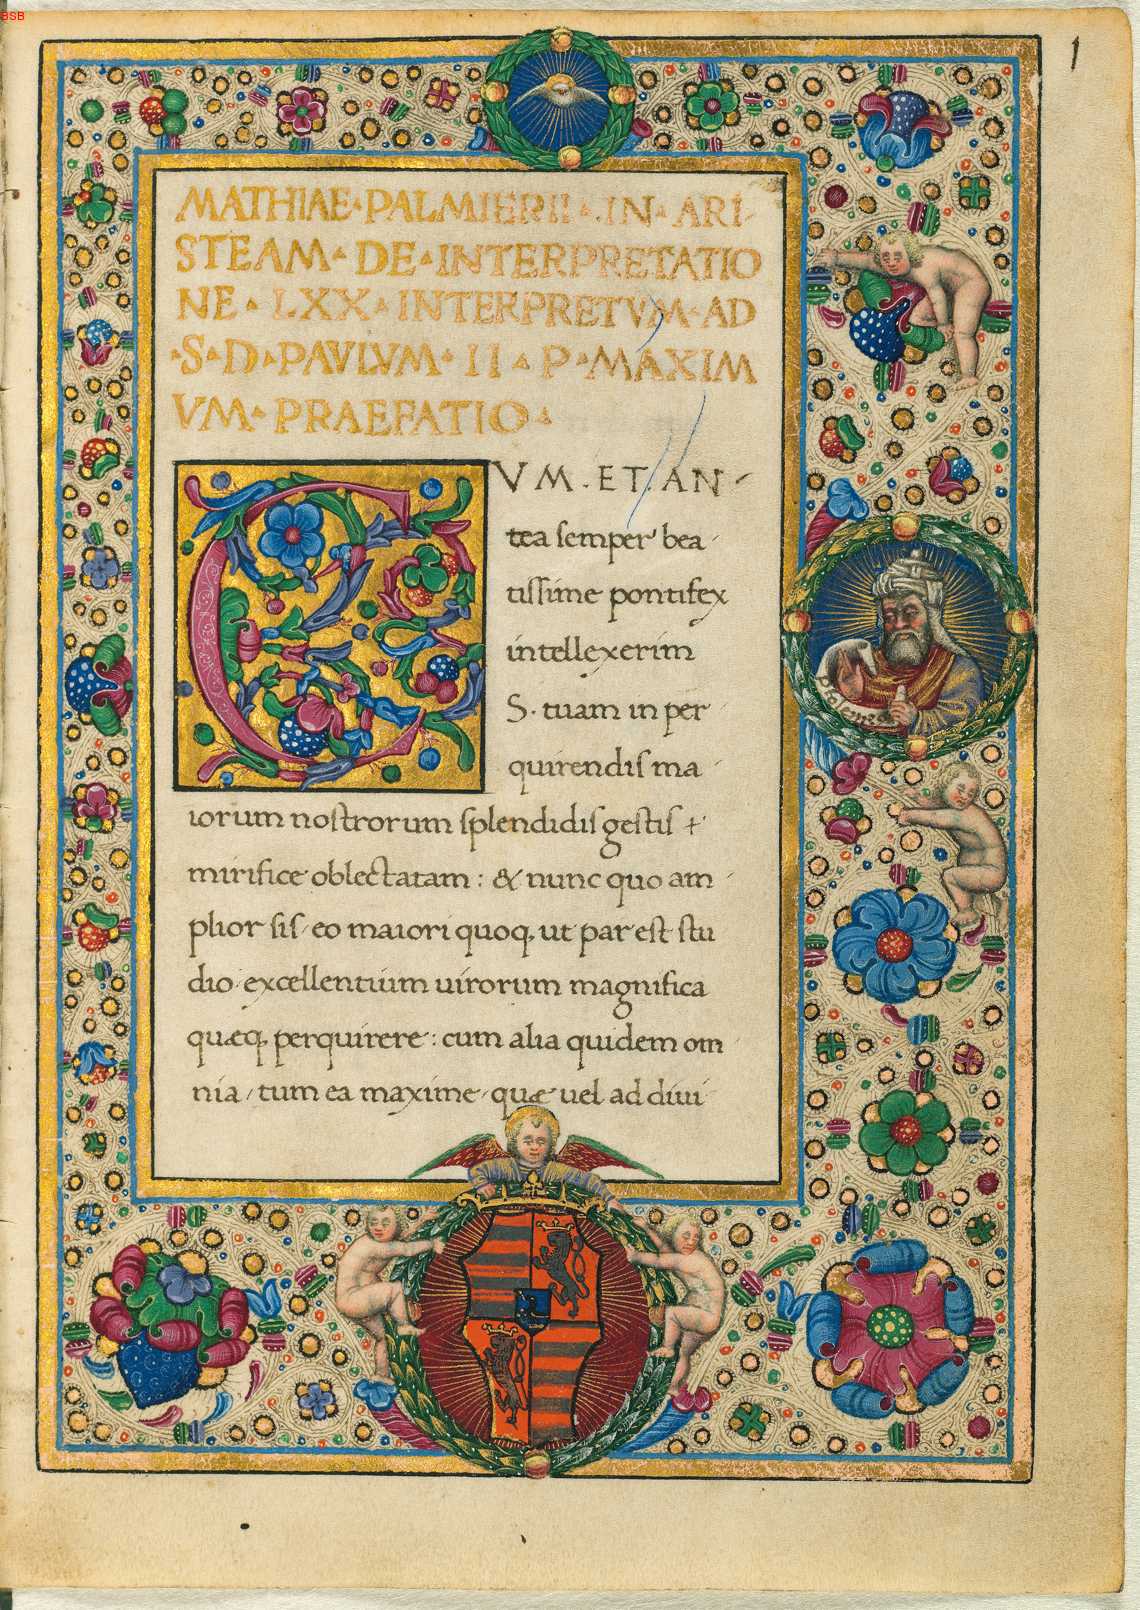 BSB
1
MATHIAE · PALMIERII · IN · ARI-
STEAM · DE · INTERPRETATIO
NE · LXX · INTERPRETVM · AD
· S · D · PAVLVM · II · P · MAXIM
VM · PRAEFATIO ·
CVM . ET . AN-
tea semper bea
tissime pontifex
intellexerim
S. tuam in per
quirendis ma
iorum nostrorum splendidis gestis &
mirifice oblectatam: & nunc quo am
plior sis, eo maiori quoq, ut par est stu
dio excellentium uirorum magnifica
quæq, perquirere: cum alia quidem om
nia, tum ea maxime quæ uel ad diui